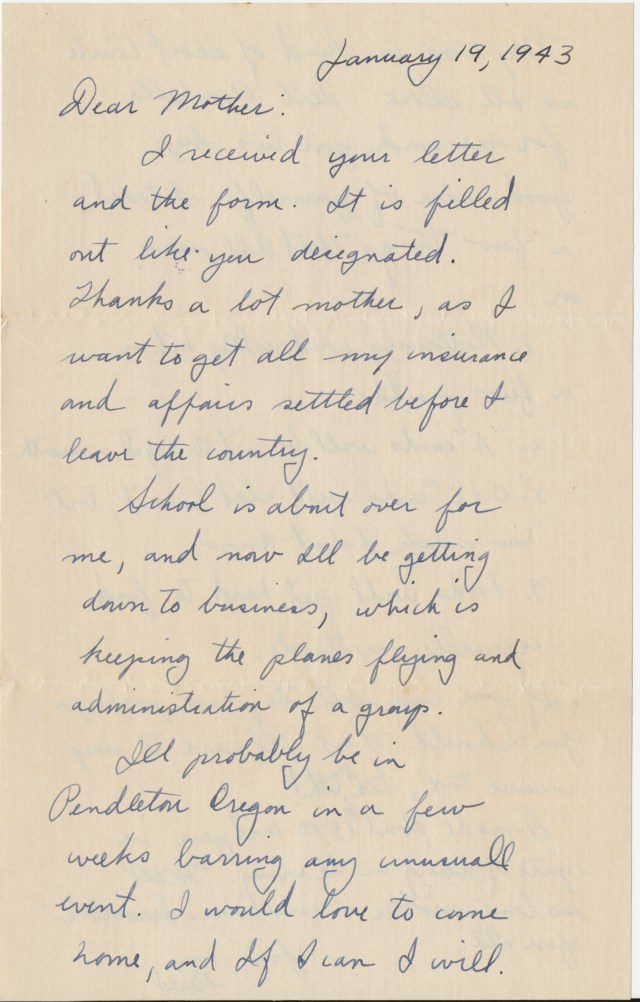 January 19, 1943
Dear Mother:
I received your letter
and the form. It is filled
out like you designated.
Thanks a lot mother, as I
want to get all my insurance
and affairs settled before I
leave the country.
School is about over for
me, and now Ill be getting
down to business, which is
keeping the planes flying and
administration of a group.
Ill probably be in
Pendleton Oregon in a few
weeks barring any unusuall
event. I would love to come
home, and If I can I will.